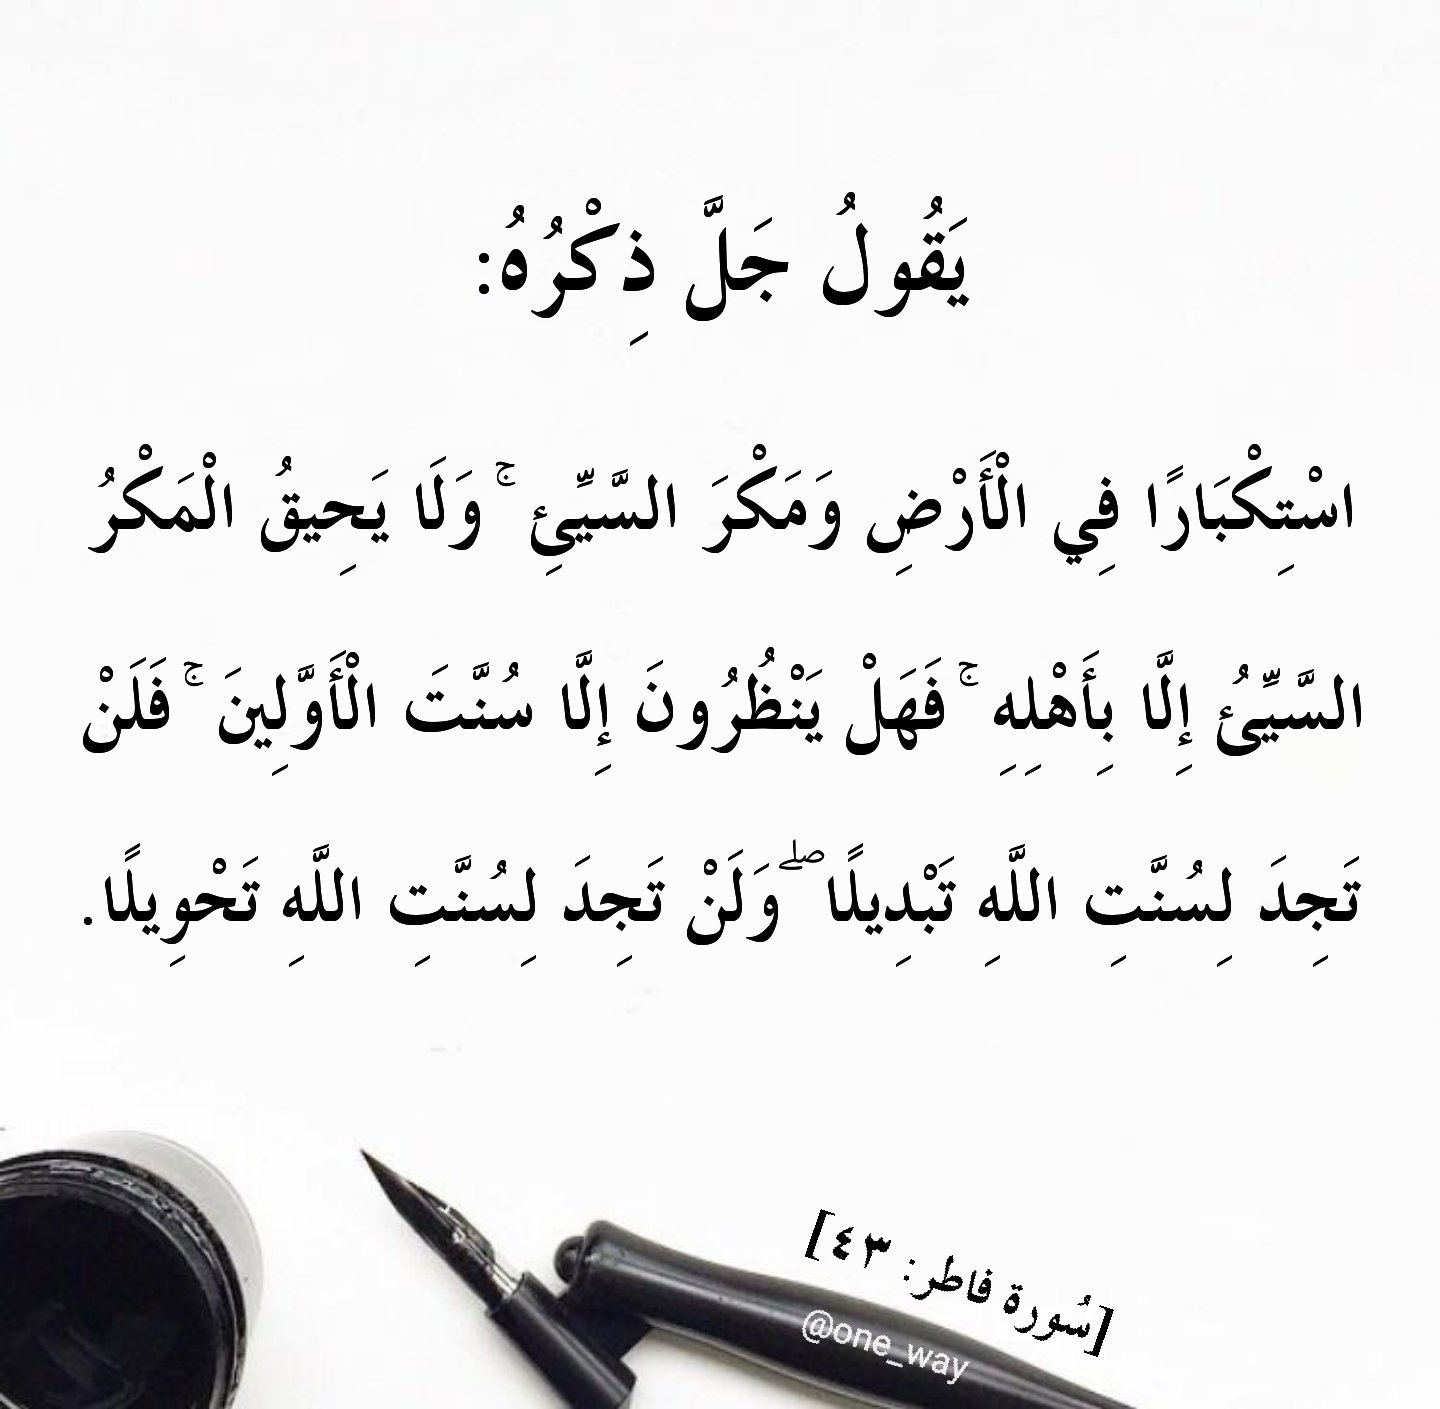 يَقُولُ جَلَّ ذِكْرُهُ:
اسْتِكْبَارًا فِي الْأَرْضِ وَمَكْرَ السَّيِّئِ ۚ وَلَا يَحِيقُ الْمَكْرُ
السَّيِّئُ إِلَّا بِأَهْلِهِ ۚ فَهَلْ يَنْظُرُونَ إِلَّا سُنَّتَ الْأَوَّلِينَ ۚ فَلَنْ
تَجِدَ لِسُنَّتِ اللَّهِ تَبْدِيلًا ۖ وَلَنْ تَجِدَ لِسُنَّتِ اللَّهِ تَحْوِيلًا.
[سُورة فاطر: ٤٣]
@one_way